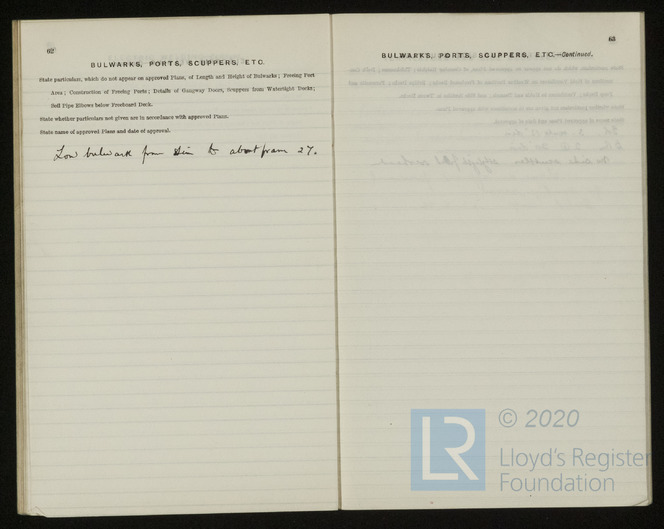 62
BULWARKS, PORTS, SCUPPERS, ETC.
State particulars, which do not appear on approved Plans, of Length and Height of Bulwarks; Freeing Port
Area; Construction of Freeing Ports; Details of Gangway Doors, Scuppers from Watertight Decks;
Soil Pipe Elbows below Freeboard Deck.
State whether particulars not given are in accordance with approved Plans.
State name of approved Plans and date of approval.
Low bulwark from Stem to about fram 27.
63
BULWARKS, PORTS, SCUPPERS, ETC.—Continued.
LR
© 2020
Lloyd's Register
Foundation